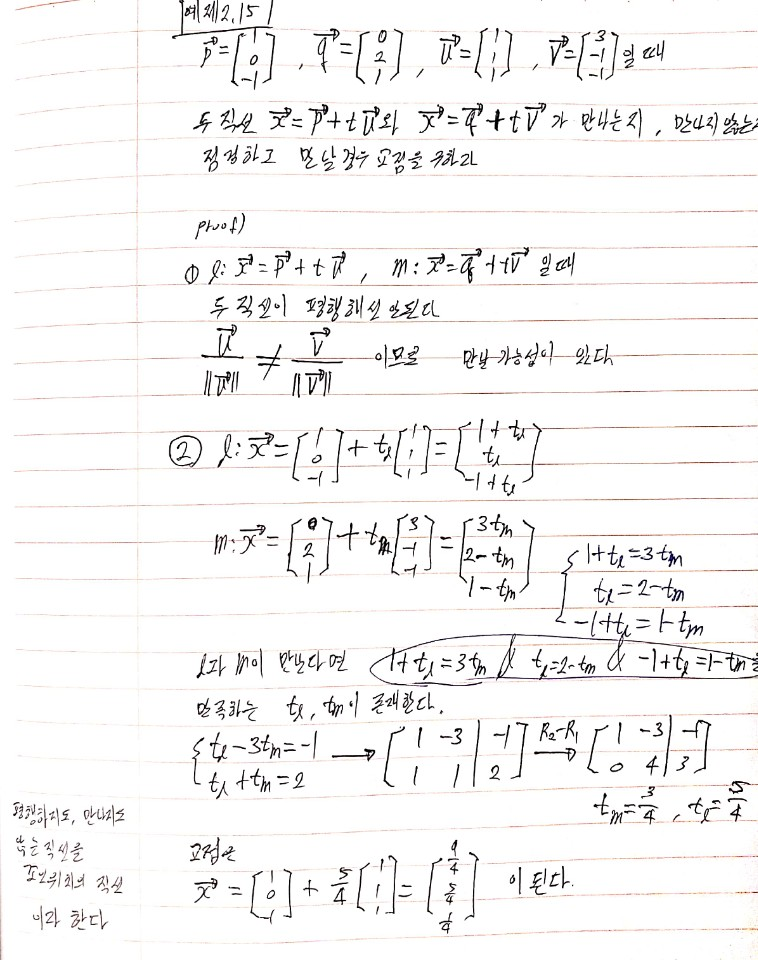 예제2.15
p⃗ = [1 0 -1], q⃗ = [0 2 1], u⃗ = [1 1 1], v⃗ = [3 -1 -1] 일 때
두 직선 x⃗ = p⃗ + t u⃗ 와 x⃗ = q⃗ + t v⃗ 가 만나는지, 만나지 않는지
결정하고 만날 경우 교점을 구하라
proof)
① l: x⃗ = p⃗ + t u⃗, m: x⃗ = q⃗ + t v⃗ 일 때
두 직선이 평행해선 안된다
u⃗ / ||u⃗|| ≠ v⃗ / ||v⃗|| 이므로 만날 가능성이 있다.
② l: x⃗ = [1 0 -1] + t_l [1 1 1] = [1+t_l t_l -1+t_l]
m: x⃗ = [0 2 1] + t_m [3 -1 -1] = [3t_m 2-t_m 1-t_m]
{ 1+t_l = 3t_m
t_l = 2-t_m
-1+t_l = 1-t_m
l과 m이 만난다면 1+t_l = 3t_m & t_l = 2-t_m & -1+t_l = 1-t_m 을
만족하는 t_l, t_m이 존재한다.
{ t_l - 3t_m = -1
t_l + t_m = 2
→ [1 -3 | -1
1 1 | 2] R₂-R₁ → [1 -3 | -1
0 4 | 3]
t_m = 3/4, t_l = 5/4
교점은
x⃗ = [1 0 -1] + 5/4 [1 1 1] = [9/4 5/4 1/4] 이 된다.
평행하지도, 만나지도
않는 직선을
꼬인위치의 직선
이라 한다